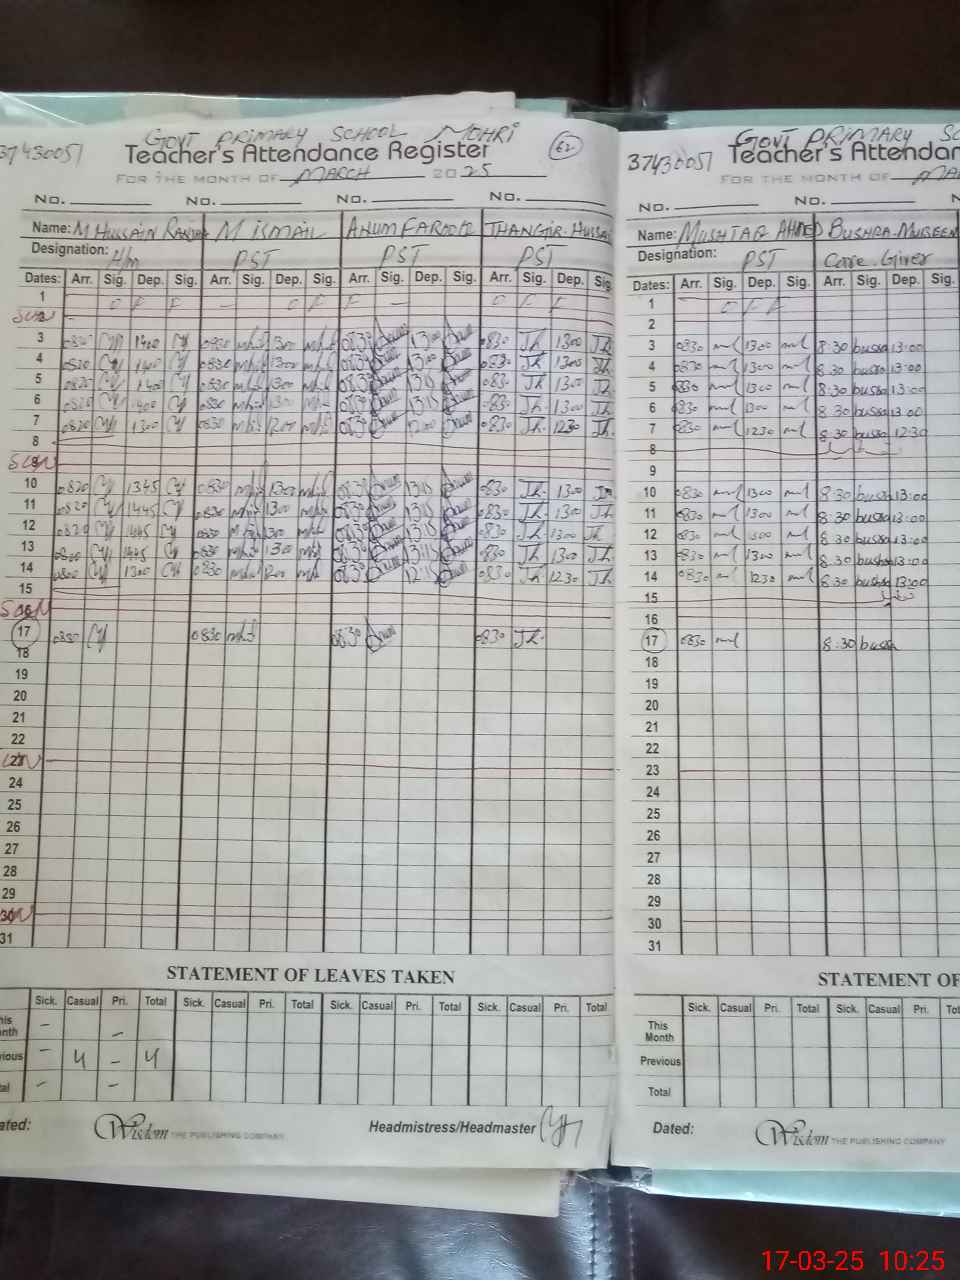 37430051 GOVT PRIMARY SCHOOL MOHRI 62
Teacher's Attendance Register
FOR THE MONTH OF MARCH 2025
No. No. No. No.
Name: M HUSSAIN M ISMAIL ANUM FAROOQ
Designation: H/m PST PST PST
Dates: Arr. Sig. Dep. Sig. Arr. Sig. Dep. Sig. Arr. Sig. Dep. Sig. Arr. Sig. Dep. Sig.
1 O F F - O F F - O F F
SUN
3 0820 1400 0830 1300 0830 1300 0830 Jh 1300 Jh
4 0820 1400 0830 1300 0830 1300 0830 Jh 1300 Jh
5 0820 1400 0830 1300 0830 1315 0830 Jh 1300 Jh
6 0820 1400 0830 1300 0830 1315 0830 Jh. 1300 Jh
7 0820 1300 0830 1200 0830 1200 0830 Jh. 1230 Jh.
8
SUN
10 0820 1345 0830 1300 0830 1315 0830 Jh. 1300 Jh
11 0820 1445 0830 1300 0830 1315 0830 Jh 1300 Jh
12 0820 1445 0830 1300 0830 1315 0830 Jh 1300 Jh
13 0800 1445 0830 1300 0830 1315 0830 Jh 1300 Jh.
14 0800 1300 0830 1200 0830 1215 0830 Jh 1230 Jh
15
SUN
17 0830 0830 0830 0830 Jh.
18
19
20
21
22
SUN
24
25
26
27
28
29
30 SUN
31
STATEMENT OF LEAVES TAKEN
Sick. Casual Pri. Total Sick. Casual Pri. Total Sick. Casual Pri. Total Sick. Casual Pri. Total
his
nth - -
vious - 4 - 4
tal - -
ated: Wisdom THE PUBLISHING COMPANY Headmistress/Headmaster
37430051 GOVT PRIMARY SC
Teacher's Attendan
FOR THE MONTH OF MA
No. No.
Name: MUSHTAQ AHMED BUSHRA
Designation: PST Care Giver
Dates: Arr. Sig. Dep. Sig. Arr. Sig. Dep. Sig.
1 O F F
2
3 0830 1300 8:30 bussa 13:00
4 0830 1300 8:30 bussa 13:00
5 0830 1300 8:30 bussa 13:00
6 0830 1300 8:30 bussa 13:00
7 0830 1230 8:30 bussa 12:30
8
9
10 0830 1300 8:30 bussa 13:00
11 0830 1300 8:30 bussa 13:00
12 0830 1300 8:30 bussa 13:00
13 0830 1300 8:30 bussa 13:00
14 0830 1230 8:30 bussa 13:00
15
16
17 0830 8:30 bussa
18
19
20
21
22
23
24
25
26
27
28
29
30
31
STATEMENT OF
Sick. Casual Pri. Total Sick. Casual Pri. Tot
This
Month
Previous
Total
Dated: Wisdom THE PUBLISHING COMPANY
17-03-25 10:25